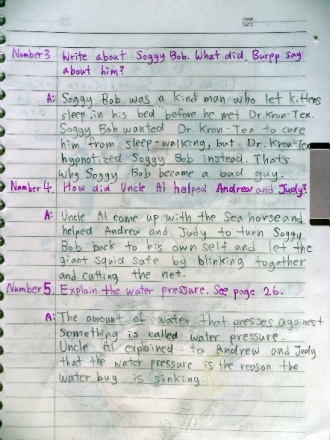 Number 3 Write about Soggy Bob. What did Burpp say
about him?
A: Soggy Bob was a kind man who let kittens
sleep in his bed before he met Dr. Kron-Tex.
Soggy Bob wanted Dr. Kron-Tex to cure
him from sleep-walking, but Dr. Kron-Tex
hypnotized Soggy Bob instead. That's
why Soggy Bob became a bad guy.
Number 4. How did Uncle Al helped Andrew and Judy?
A: Uncle Al come up with the Sea horse and
helped Andrew and Judy to turn Soggy
Bob back to his own self and let the
giant squid safe by blinking together
and cutting the net.
Number 5. Explain the water pressure. See page 26.
A: The amount of water that presses against
something is called water pressure.
Uncle Al explained to Andrew and Judy
that the water pressure is the reason the
water bug is sinking.